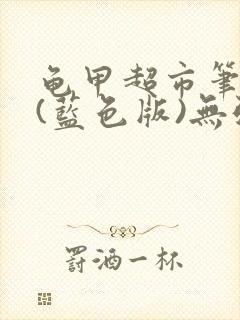 龟甲超市筆
(藍色版)無
罰酒一杯